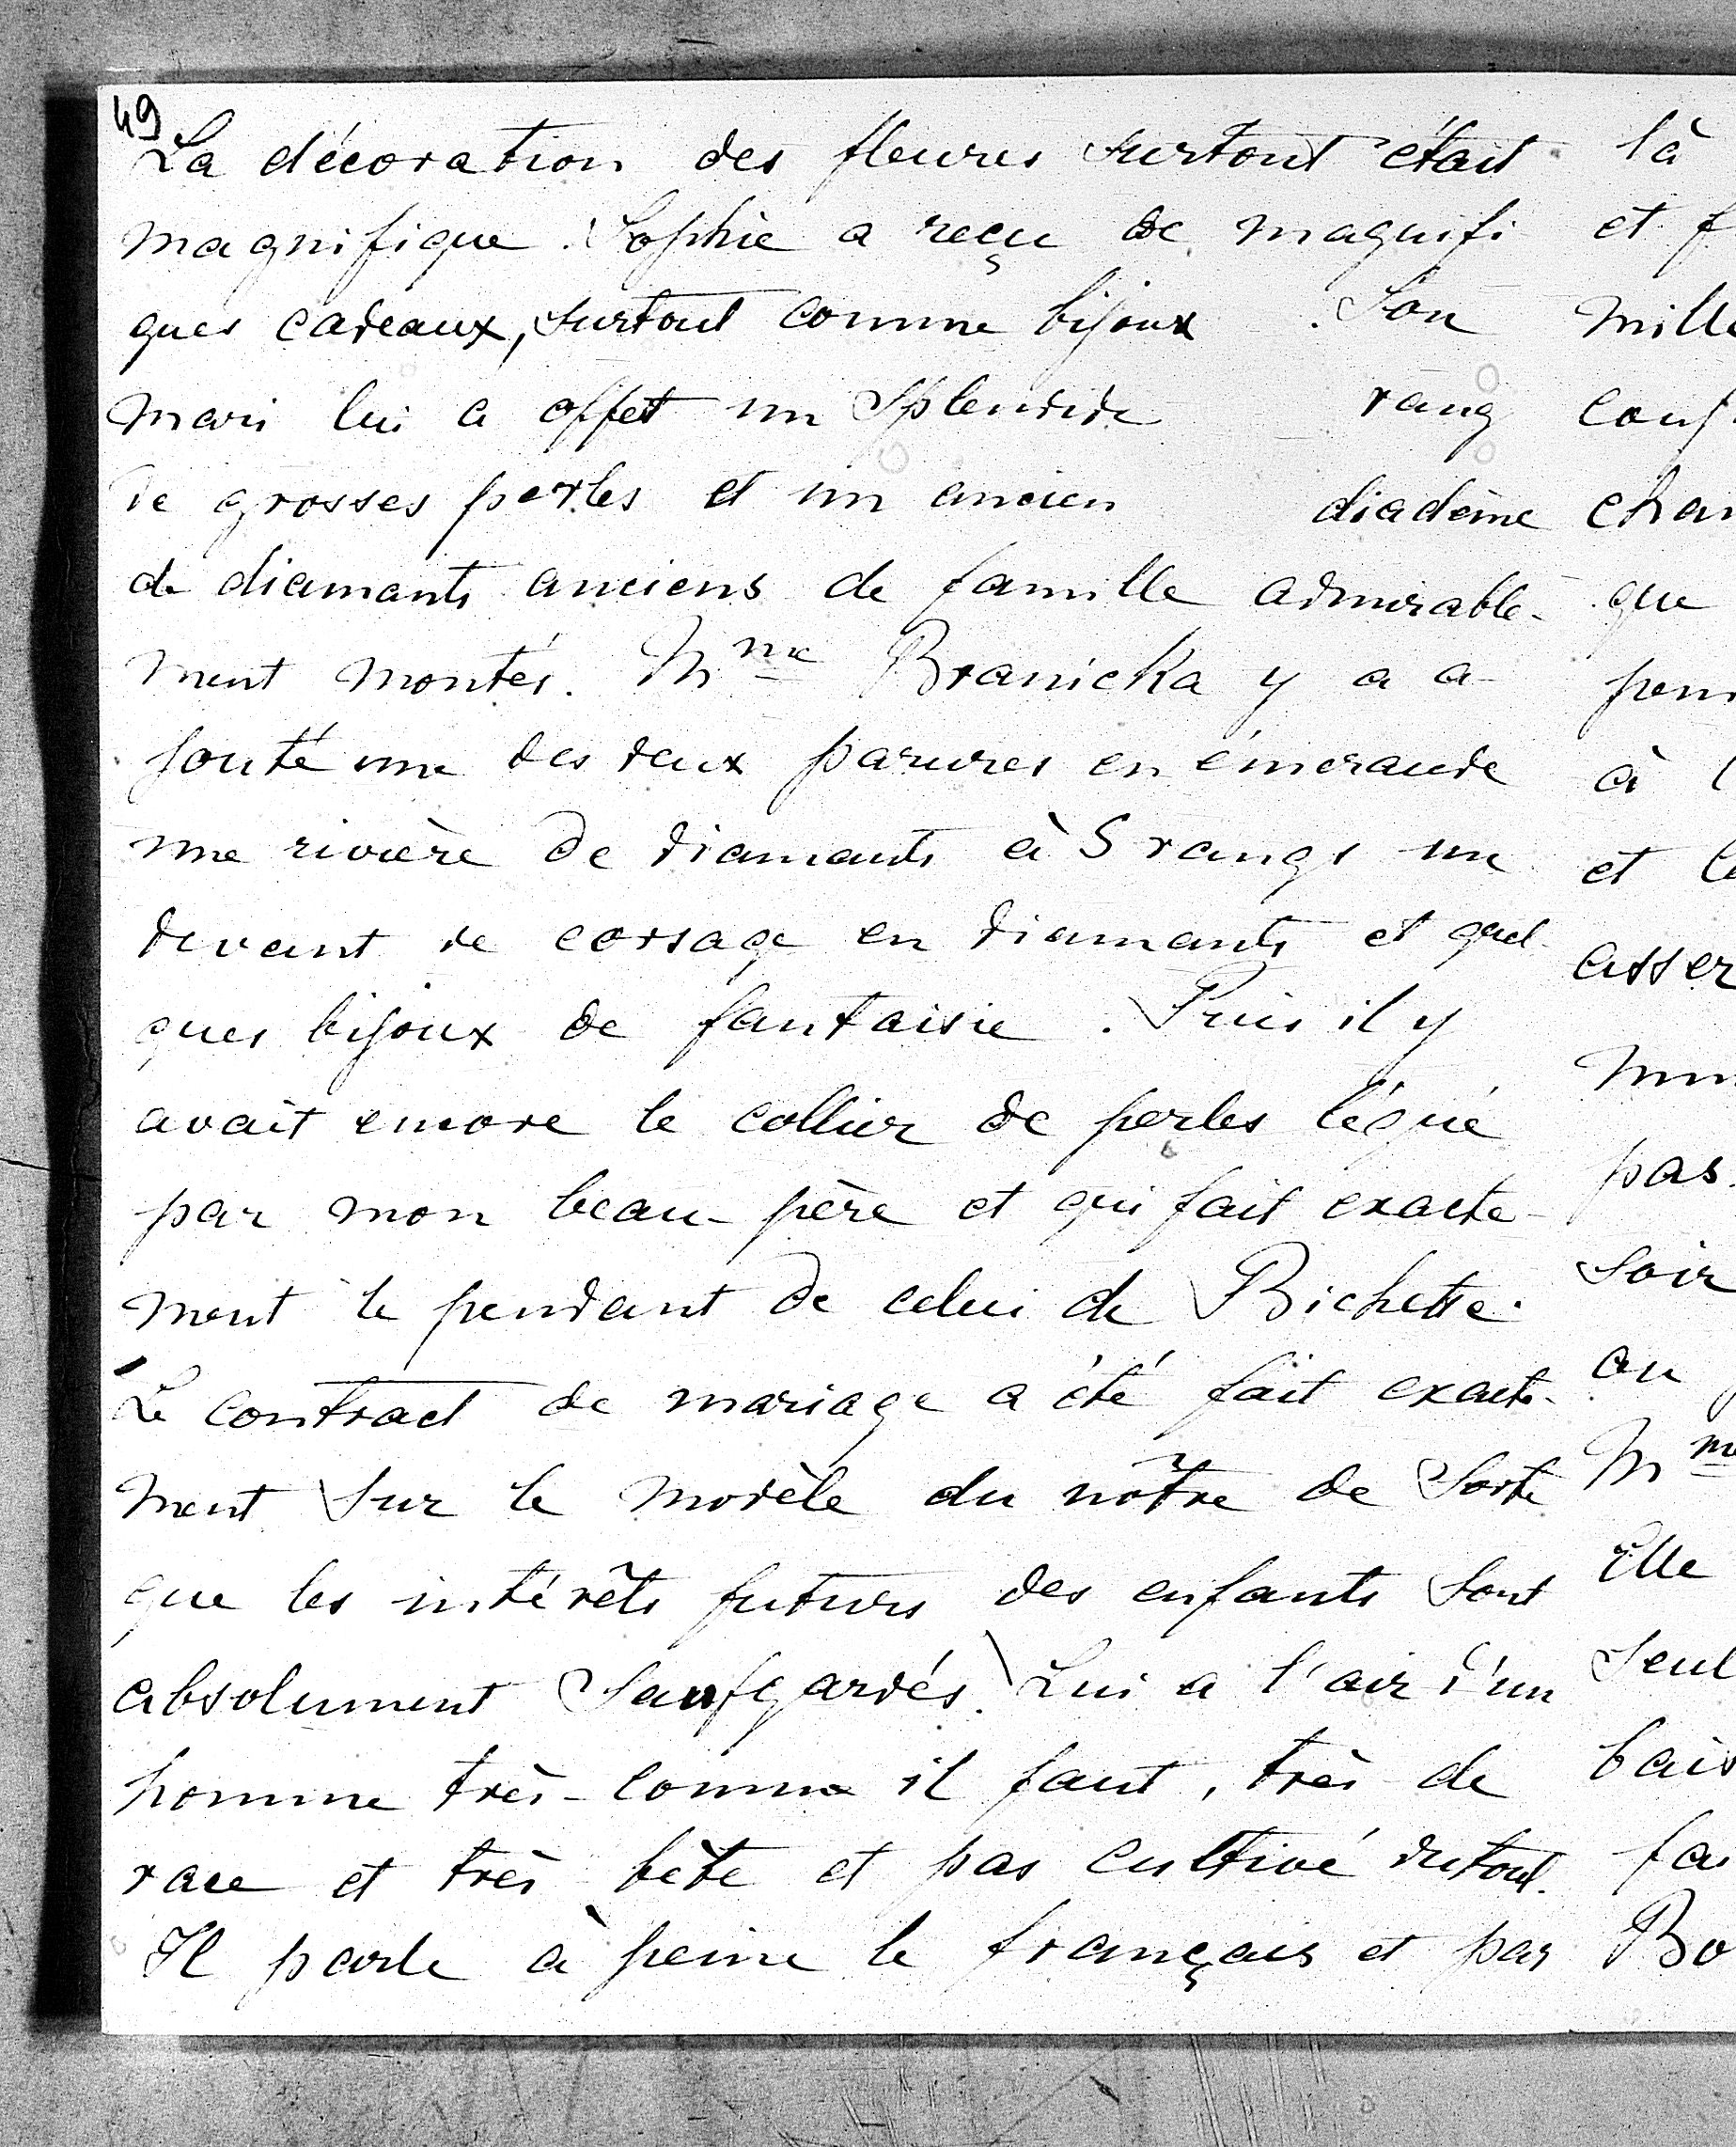 49
La décoration des fleures surtout était
magnifique. Sophie a reçu de magnifi
ques cadeaux, surtout comme bijoux. Son
mari lui a offet un splendide rang
de grosses perles et un ancien diadème
de diamants anciens de famille admirable-
ment montés. Mme Branicka y a a-
jouté une des deux parures en émeraude
une rivière de diamants à 5 rangs un
devant de corsage en diamants et quel-
ques bijoux de fantaisie. Puis il y
avait encore le collier de perles légué
par mon beau-père et qui fait exacte-
ment le pendant de celui de Bichette.
Le contract de mariage a été fait exacte-
ment sur le modèle du nôtre de sorte
que les intérêts futurs des enfants sont
absolument saufgardés. Lui a l'air d'un
homme très-comme il faut, très de
race et très bête et pas cultivé dutout.
Il parle à peine le français et pas
là
et f
mille
conf
chan
que
pen
à l
et le
asser
pas.
soir
au
Mme
Elle
seul
bais
fai
Bo